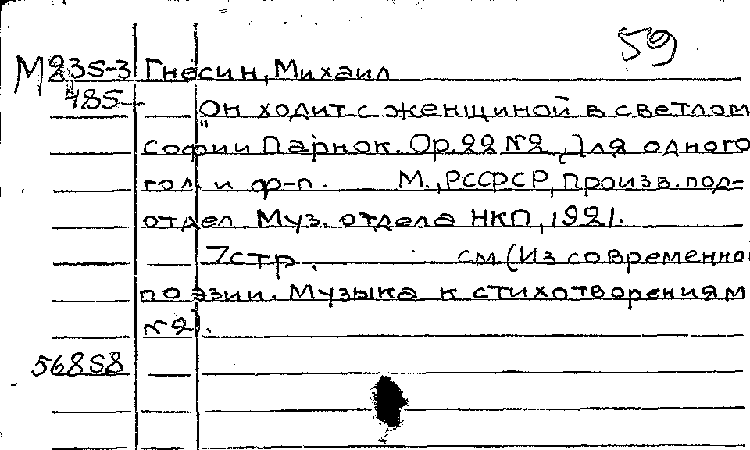 59
М235-3 Гнесин, Михаил
485
"Он ходит с женщиной в светлом
Софии Парнок. Op.22 №2, Для одного
гол. и ф-п. М., РССФСР, Произв. под-
отдел Муз. отдела НКП, 1921.
7стр. см (Из современно
поэзии. Музыка к стихотворениям
№2).
56858